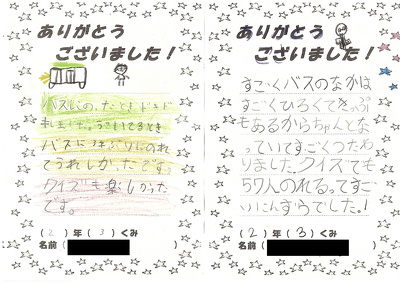 ありがとう
ございました!
バスにのったときドキドキ
しました。うごいてるとき
バスに
のれ
てうれしかったです。
クイズも楽しかった
です。
(2)年(3)くみ
名前( )
ありがとう
ございました!
すごくバスのなかは
すごくひろくて
もあるからちゃんと
っていてすごくつたわ
りました。クイズでも
57人のれるってすご
いにんずうでした。!
(2)年(3)くみ
名前( )